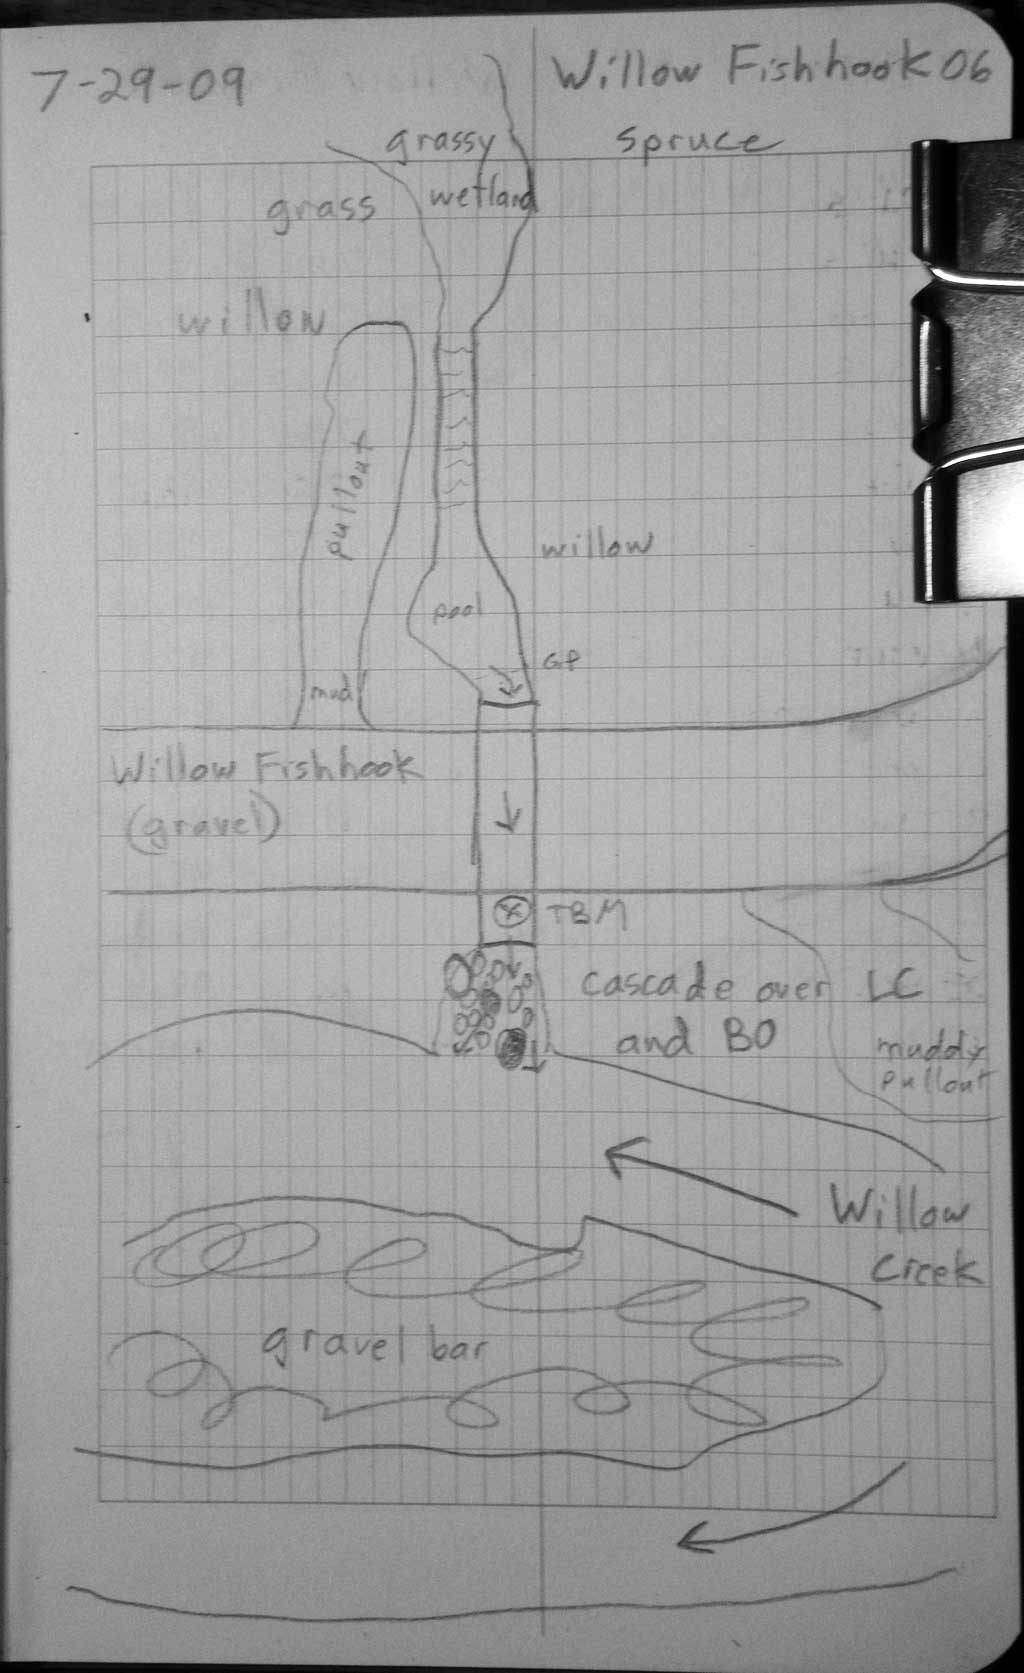 7-29-09
Willow Fishhook 06
grassy
spruce
wetland
grass
willow
pullout
willow
pool
GP
mud
Willow Fishhook
(gravel)
TBM
cascade over LC
and BO
muddy
pullout
Willow
Creek
gravel bar